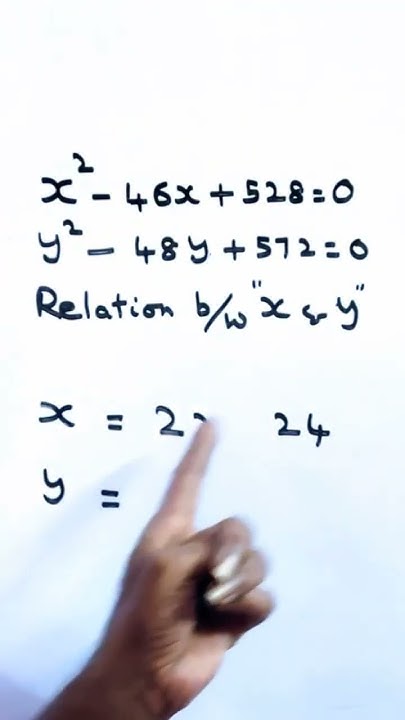 x² - 46x + 528 = 0
y² - 48y + 572 = 0
Relation b/w "x & y"
x = 24
y =